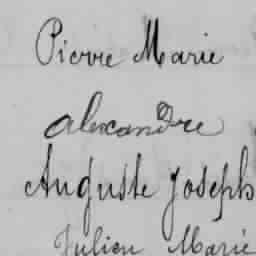 Pierre Marie
alexandre
Auguste Joseph
Julien Marie